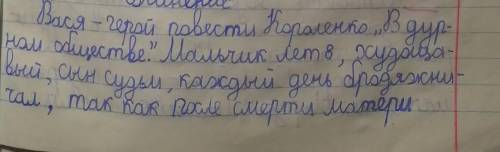 Вася - герой повести Короленко „В дур-
ном обществе." Мальчик лет 8, худоща-
вый, сын судьи, каждый день бродяжни-
чал, так как после смерти матери